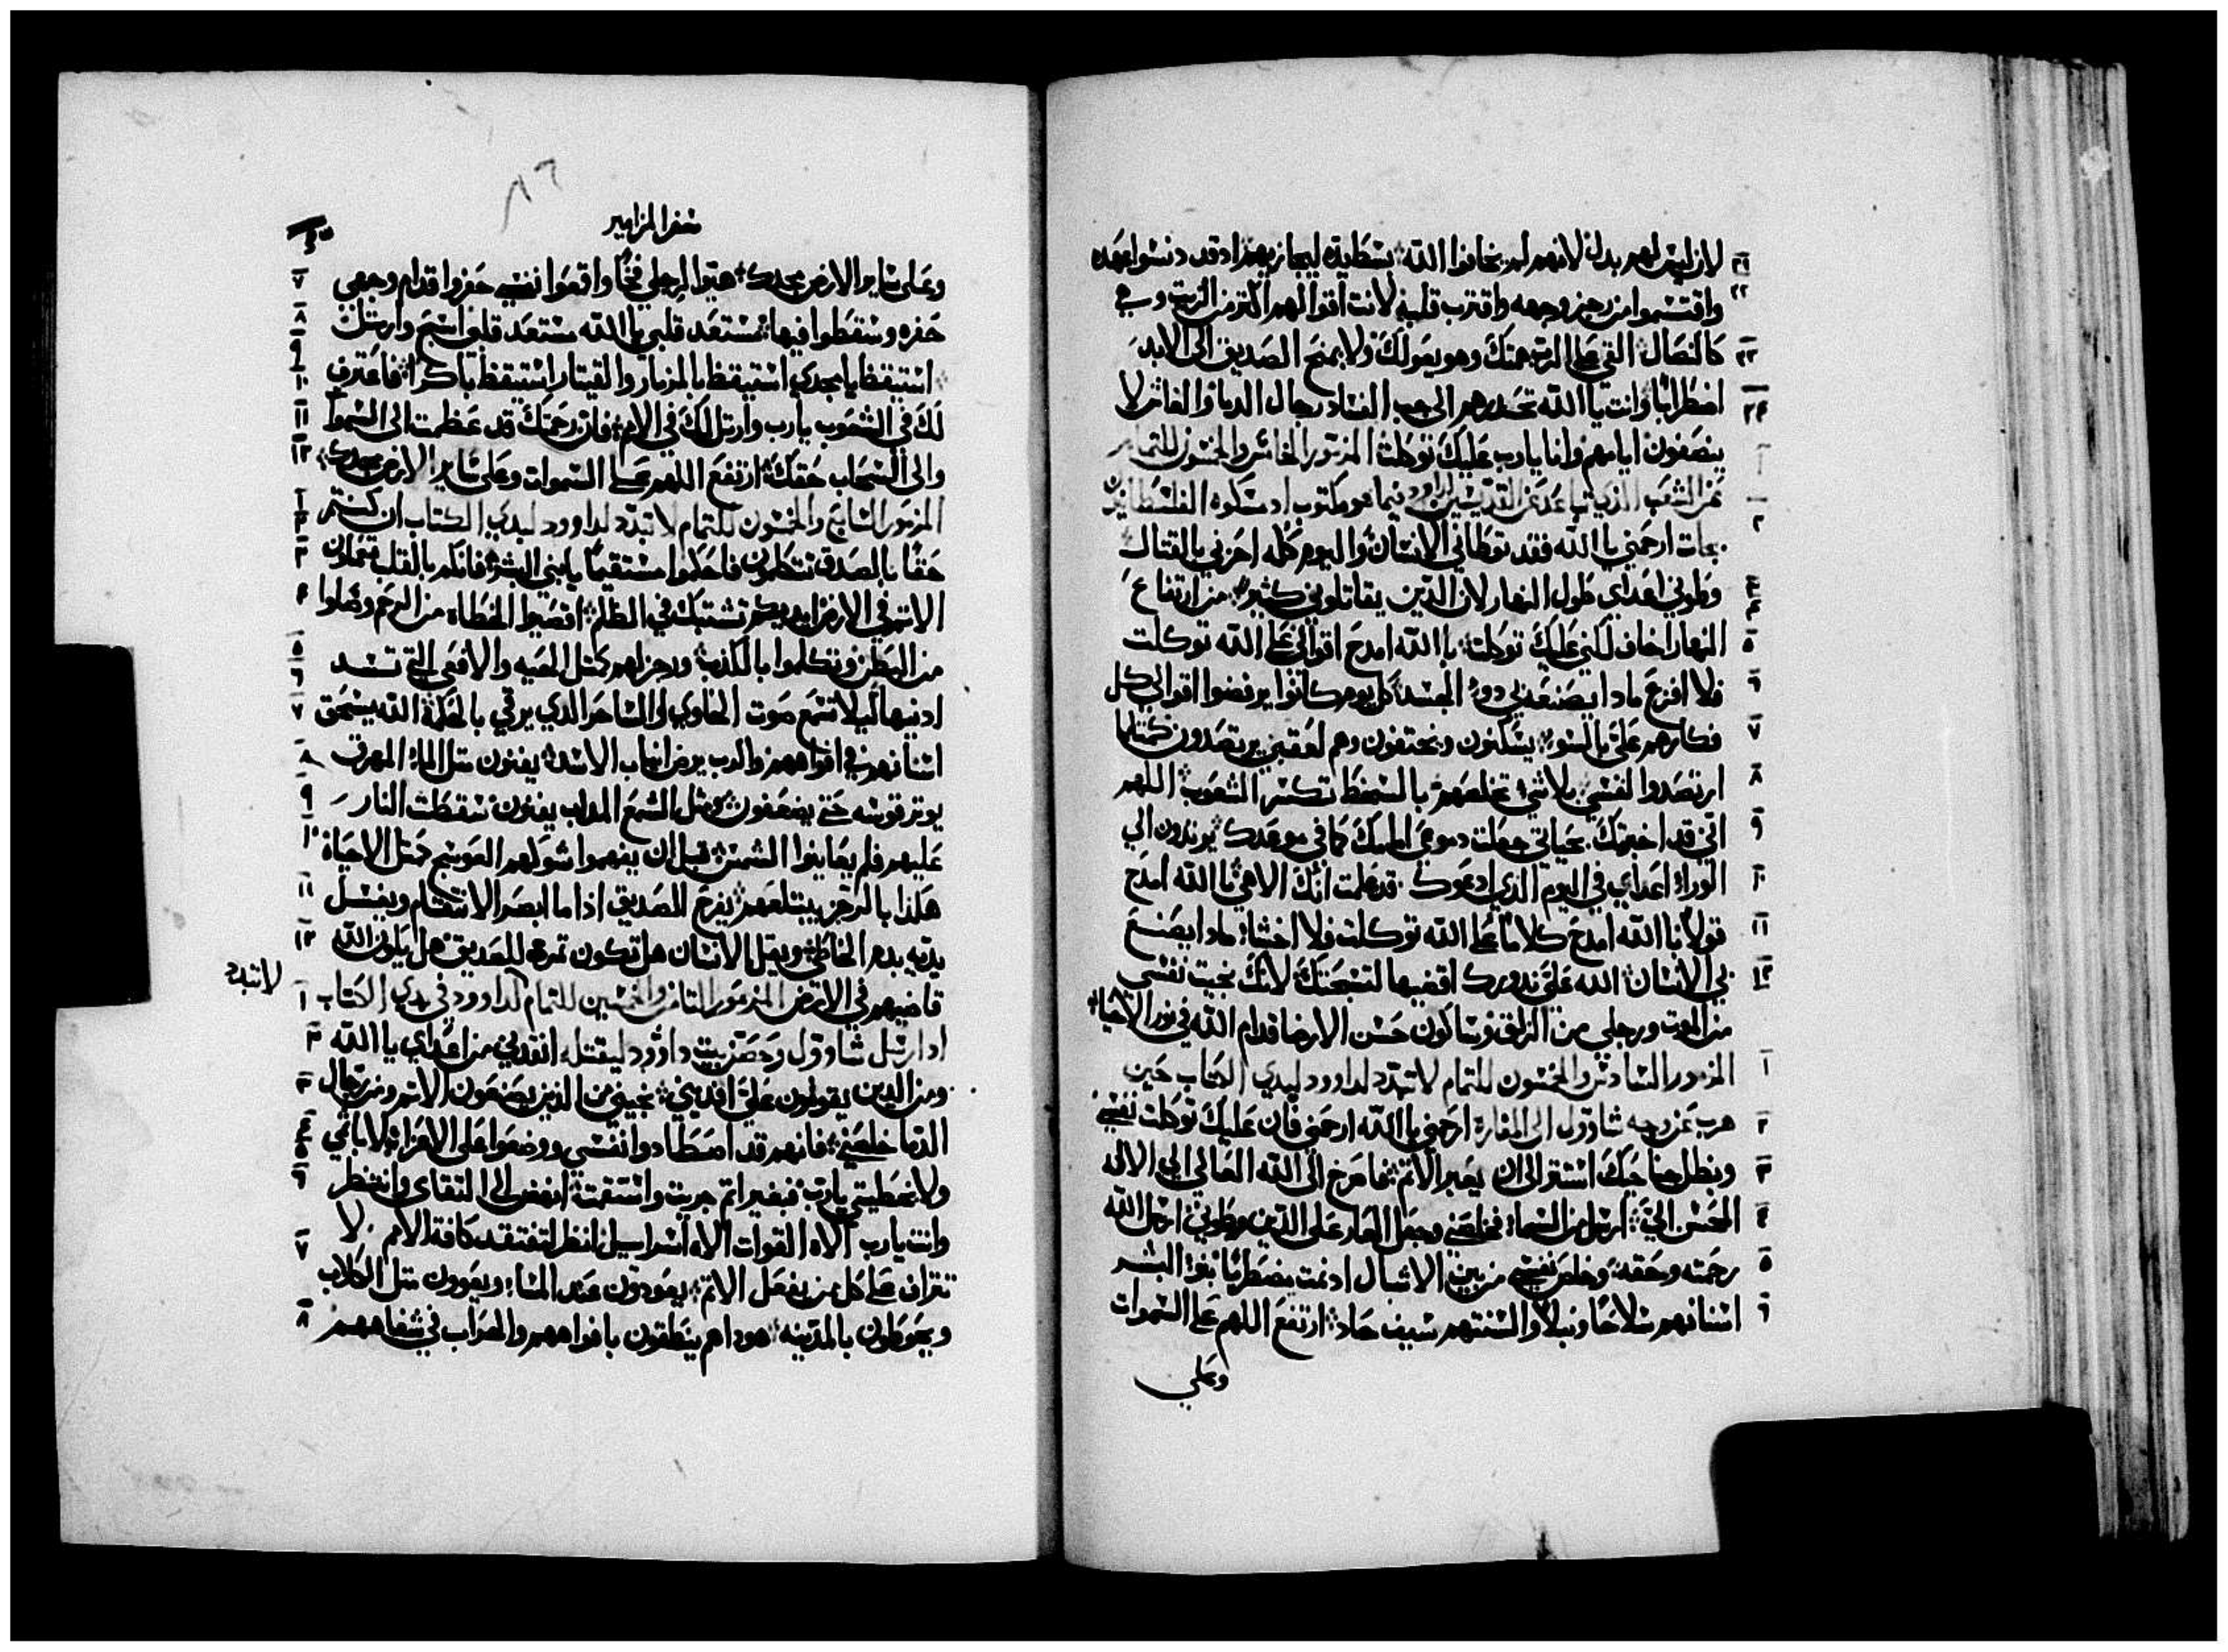 لان ليس لهم بدل لانهم لم يخافوا الله بسط يده ليجازيهم اد قد دنسوا عهده
واقتسموا من رجز وجهه واقترب قلبه لانت اقوالهم اكتر من الزيت وهي
كالنصال القي على الرب همك وهو يعولك ولا يمنح الصديق الى الابد
اضطرابًا وانت يا الله تحدرهم الى جب الفساد رجال الدما والغاش لا
ينصفون ايامهم وانا يارب عليك توكلت المزمور الخامس والخمسون للتمام
عن الشعب الدي تباعد عن القديسين لداوود فيما هو مكتوب اد مسكوه الفلسطانيين
بجات ارحمني يا الله فقد توطاني الانسان واليوم كله احزني بالقتال
وطوني اعداي طول النهار لان الدين يقاتلوني كثير من ارتفاع
النهار اخاف لكني عليك توكلت با الله امدح اقوالي على الله توكلت
فلا افزع مادا يصنع بي دوو الجسد كل يوم كانوا يرفضوا اقوالي كل
فكارهم علي بالسوء يسكنون ويختفون وهم لعقبي يرتصدون كمتلما
ارتصدوا لنفسي بلا شي تخلصهم بالسخط تكسر الشعوب اللهم
اني قد اخبرتك بحياتي جعلت دموعي امامك كما في موعدك يرتدون الي
الوراء اعداي في اليوم الدي ادعوك قد علمت انك الاهي با الله امدح
قولًا با الله امدح كلامًا على الله توكلت فلا اخشا مادا يصنع
بي الانسان الله علي ندورك اقضيها لتسبحتك لانك نجيت نفسي
من الموت ورجلي من الزلق وساكون حسن الارضا قدام الله في نور الاحياء
المزمور السادس والخمسون للتمام لا تبدد لداوود ليدي الكتاب حين
هرب عن وجه شاوول الى المغارة ارحمني يا الله ارحمني فان عليك توكلت نفسي
وبظل جناحيك استتر الى ان يعبر الاتم فاصرخ الى الله العالي الي الاله
المحسن الي ارسل من السماء فخلصني وجعل العار على الدين وطوني ارسل الله
رحمته وحقه وخلص نفسي من بين الاشبال اد نمت مضطربًا بنو البشر
اسنانهم سلاحًا ونبلًا والسنتهم سيف حاد ارتفع اللهم على السموات
وعلي
سفر المزامير
وعلى ساير الارض مجدك هيوا لرجلي فخًا واقعوا نفسي حفروا قدام وجهي
حفره وسقطوا فيها مستعد قلبي يا الله مستعد قلبي اسبح وارتل
استيقظ يا مجدي استيقظ بالمزمار والقيتار استيقظ باكرًا فاعترف
لك في الشعوب يارب وارتل لك في الامم فان رحمتك قد عظمت الى السموات
والى السحاب حقك ارتفع اللهم على السموات وعلى ساير الارض مجدك
المزمور السابع والخمسون للتمام لا تبدد لداوود ليدي الكتاب ان كنتم
حقًا بالصدق تنطقون فاحكموا مستقيمًا يا بني البشر فانكم بالقلب تعملون
الاتم في الارض ايديكم تشتبك في الظلم اقصيوا الخطاه من الرحم وضلوا
من البطن وتكلموا بالكذب ورجزهم كمتل الحيه والافعى التي تسد
ادنيها ليلا تسمع صوت الحاوي والساحر الدي يرقي بالحكمة الله يسحق
اسنانهم في افواههم والرب يرض انياب الاسد يفنون متل الماء المهرق
يوتر قوسه حتى يضعفون ومثل الشمع المداب يفنون سقطت النار
عليهم فلم يعاينوا الشمس قبل ان يفهموا شوكهم العوسج كمتل الاحياء
هكذا بالرجز يبتلعهم يفرح الصديق اذا ما ابصر الانتقام ويغسل
يديه بدم الخاطي ويقل الانسان هل تكون تمره للصديق هل يكون الله
قاضيهم في الارض المزمور التامن والخمسين للتمام لداوود في يدي الكتاب
لا تبدد
اد ارسل شاوول وحصر بيت داوود ليقتله انقدني من اعداي يا الله
ومن الدين يقومون علي افديني نجيني من الذين يصنعون الاتم ومن رجال
الدما خلصني فانهم قد اصطادوا نفسي ووضعوا على الاعزاء لا باتمي
ولا بخطيتي يارب فبغير اتم جريت واستقمت انهض الى التقاي وانظر
وانت يارب الاه القوات الاه اسراييل انظر لتفتقد كافة الامم لا
تتراف على كل من يفعل الاتم يعودون عند المساء ويعوون متل الكلاب
ويحوطون بالمدينه هودا هم ينطقون بافواههم والحراب في شفاههم